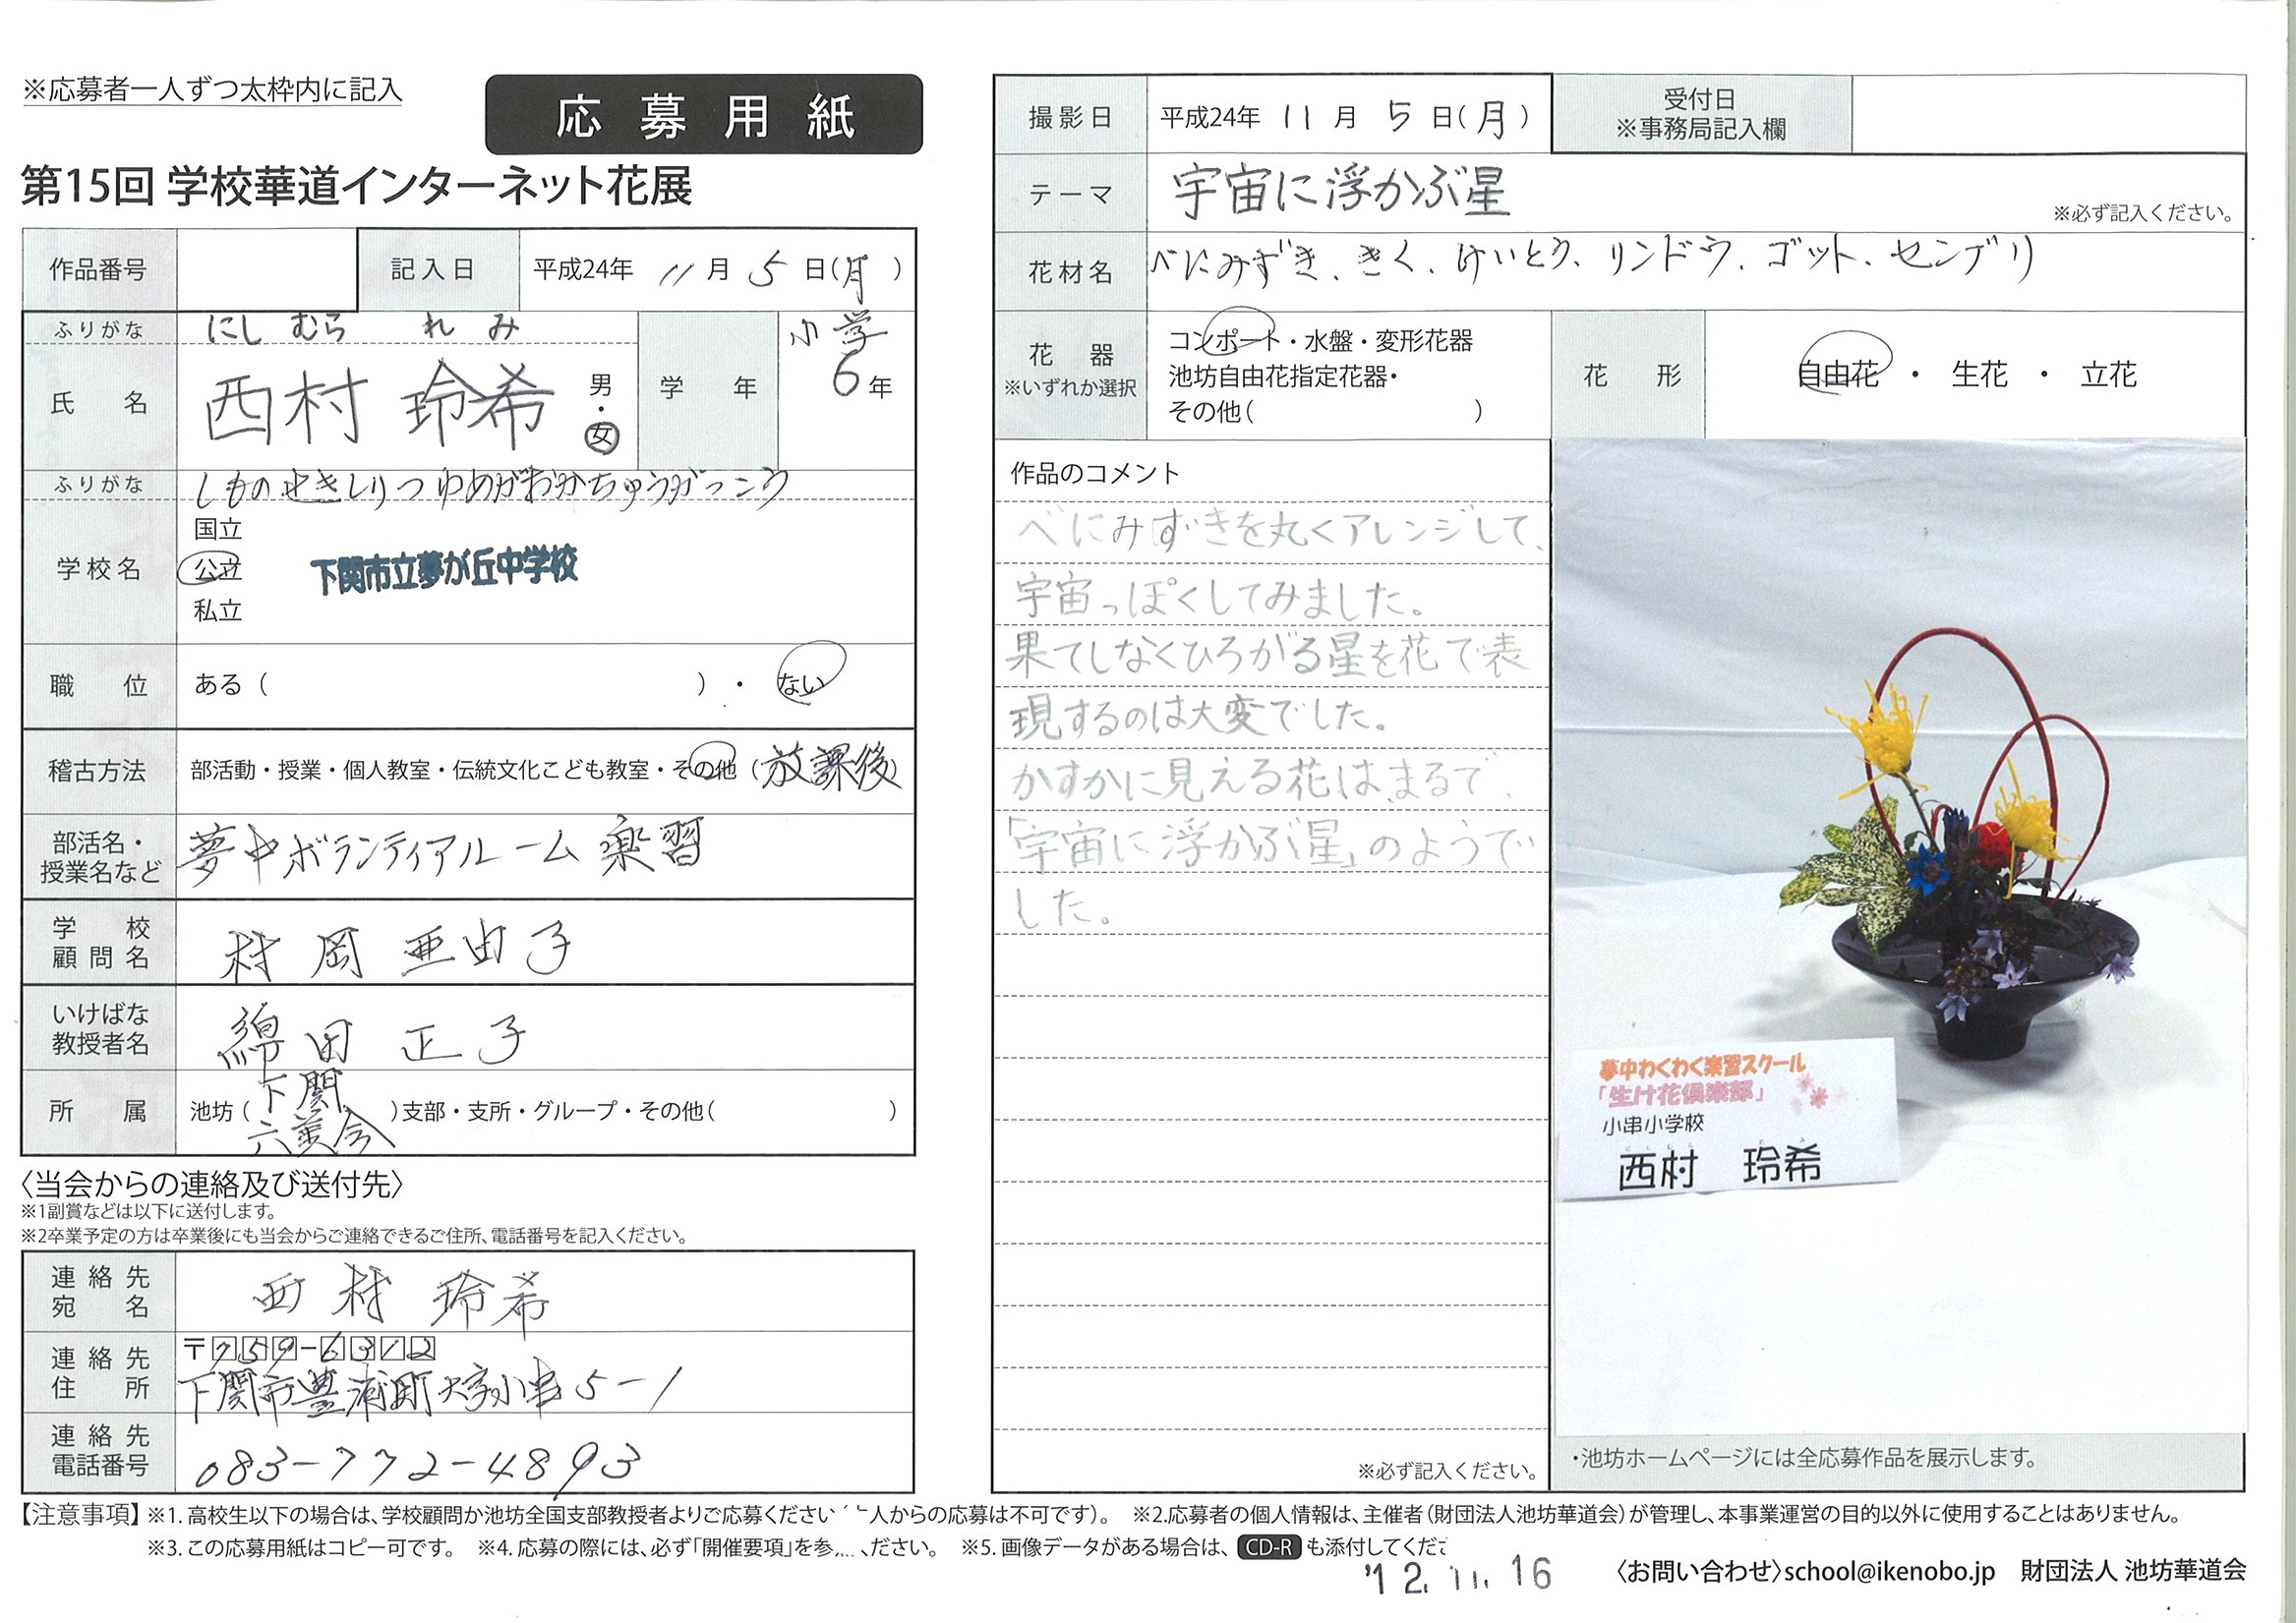 ※応募者一人ずつ太枠内に記入
応募用紙
第15回 学校華道インターネット花展
作品番号
記入日 平成24年 11月 5日(月)
ふりがな にしむら れみ
氏名 西村 玲希 男・女
学年 小学6年
ふりがな しものせきしりつ ゆめがおかちゅうがっこう
学校名 国立 公立 私立 下関市立夢が丘中学校
職位 ある( )・ない
稽古方法 部活動・授業・個人教室・伝統文化こども教室・その他(放課後)
部活名・授業名など 夢中ボランティアルーム 楽習
学校顧問名 村岡 亜由子
いけばな教授者名 綿田 正子
所属 池坊(下関六美会)支部・支所・グループ・その他( )
〈当会からの連絡及び送付先〉
※1副賞などは以下に送付します。
※2卒業予定の方は卒業後にも当会からご連絡できるご住所、電話番号を記入ください。
連絡先宛名 西村 玲希
連絡先住所 〒759-6312
下関市豊浦町大字小串5-1
連絡先電話番号 083-772-4893
撮影日 平成24年 11月 5日(月)
受付日
※事務局記入欄
テーマ 宇宙に浮かぶ星
※必ず記入ください。
花材名 べにみずき、きく、けいとう、リンドウ、ゴット、センブリ
花器 ※いずれか選択
コンポート・水盤・変形花器
池坊自由花指定花器・
その他( )
花形 自由花・生花・立花
作品のコメント
べにみずきを丸くアレンジして、
宇宙っぽくしてみました。
果てしなくひろがる星を花で表
現するのは大変でした。
かすかに見える花は、まるで、
「宇宙に浮かぶ星」のようで
した。
※必ず記入ください。
夢中わくわく楽習スクール
「生け花倶楽部」
小串小学校
西村 玲希
・池坊ホームページには全応募作品を展示します。
【注意事項】※1. 高校生以下の場合は、学校顧問か池坊全国支部教授者よりご応募ください 人からの応募は不可です)。 ※2.応募者の個人情報は、主催者(財団法人池坊華道会)が管理し、本事業運営の目的以外に使用することはありません。
※3. この応募用紙はコピー可です。 ※4. 応募の際には、必ず「開催要項」を参 ください。 ※5. 画像データがある場合は、CD-Rも添付してくだ
'12. 11. 16
〈お問い合わせ〉school@ikenobo.jp 財団法人 池坊華道会